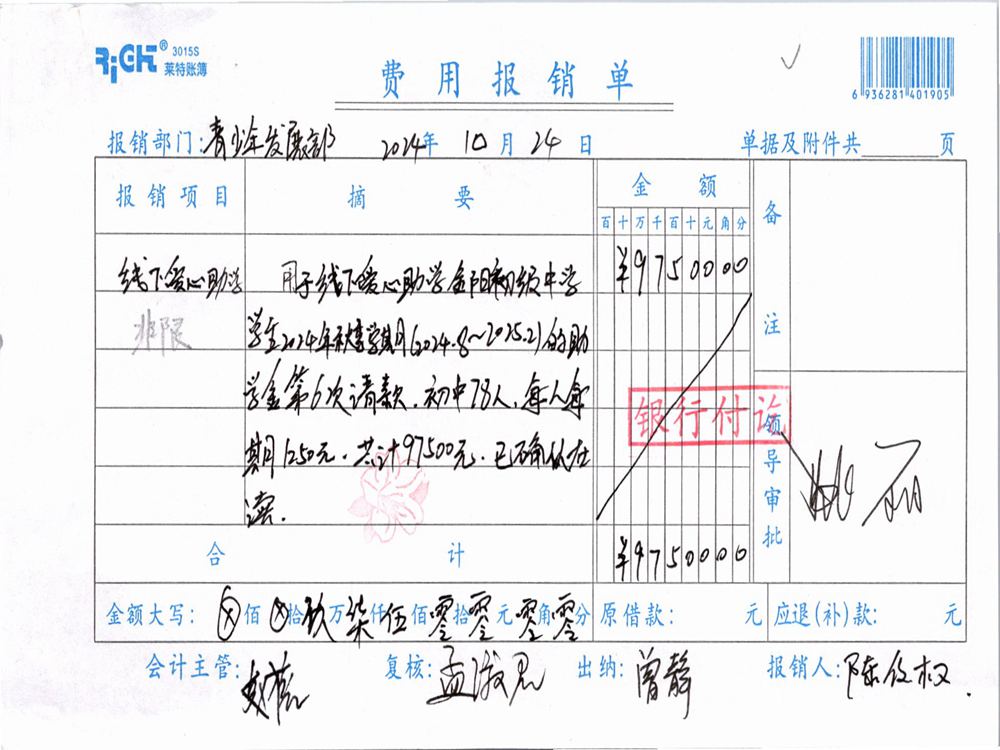 RiGHT® 3015S
莱特账簿
费用报销单
6 936281 401905
报销部门:青少年发展部 2024年 10月 24日 单据及附件共 页
报销项目 摘要 金额 备注
百十万千百十元角分
线下爱心助学 用于线下爱心助学金阳初级中学 ¥9750000
非限 学生2024年秋季学期(2024.8~2025.2)的助
学金第6次请款.初中78人,每人每
期1250元.共计97500元.已确认在
读.
银行付讫
领导审批
合计 ¥9750000
金额大写: ⊗佰⊗拾玖万柒仟伍佰零拾零元零角零分 原借款: 元 应退(补)款: 元
会计主管: 复核:孟淑君 出纳:曾静 报销人:陈